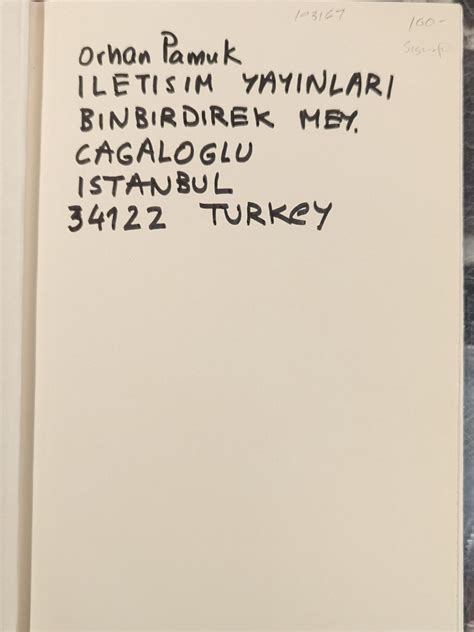 103167
160-
Orhan Pamuk
ILETISIM YAYINLARI
BINBIRDIREK MEY.
CAGALOGLU
ISTANBUL
34122 TURKEY